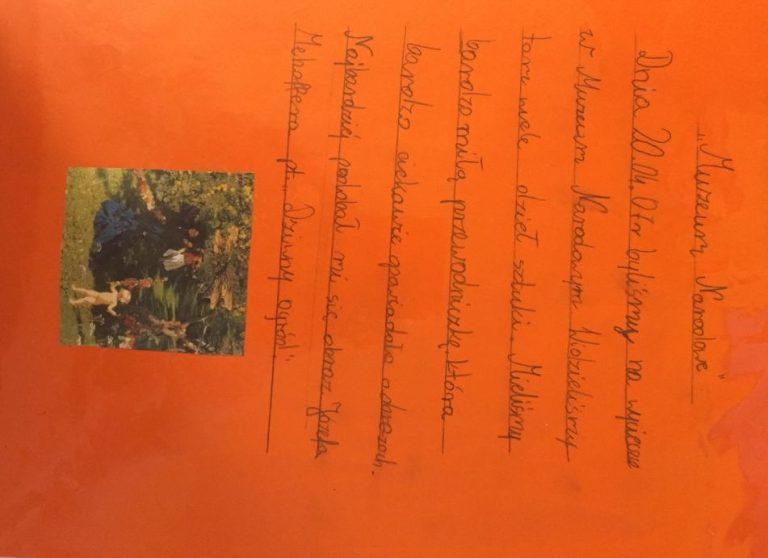 „Muzeum Narodowe"
Dnia 20.04.07r byliśmy na wyciecce
w Muzeum Narodowym Widzieliśmy
tam wiele dzieł sztuki. Mieliśmy
bardzo miłą przewodniczkę, która
bardzo ciekawie opowiadała o obrazach.
Najbardziej podobał mi się obraz Józefa
Mehoffera pt. „Dziwny ogród".